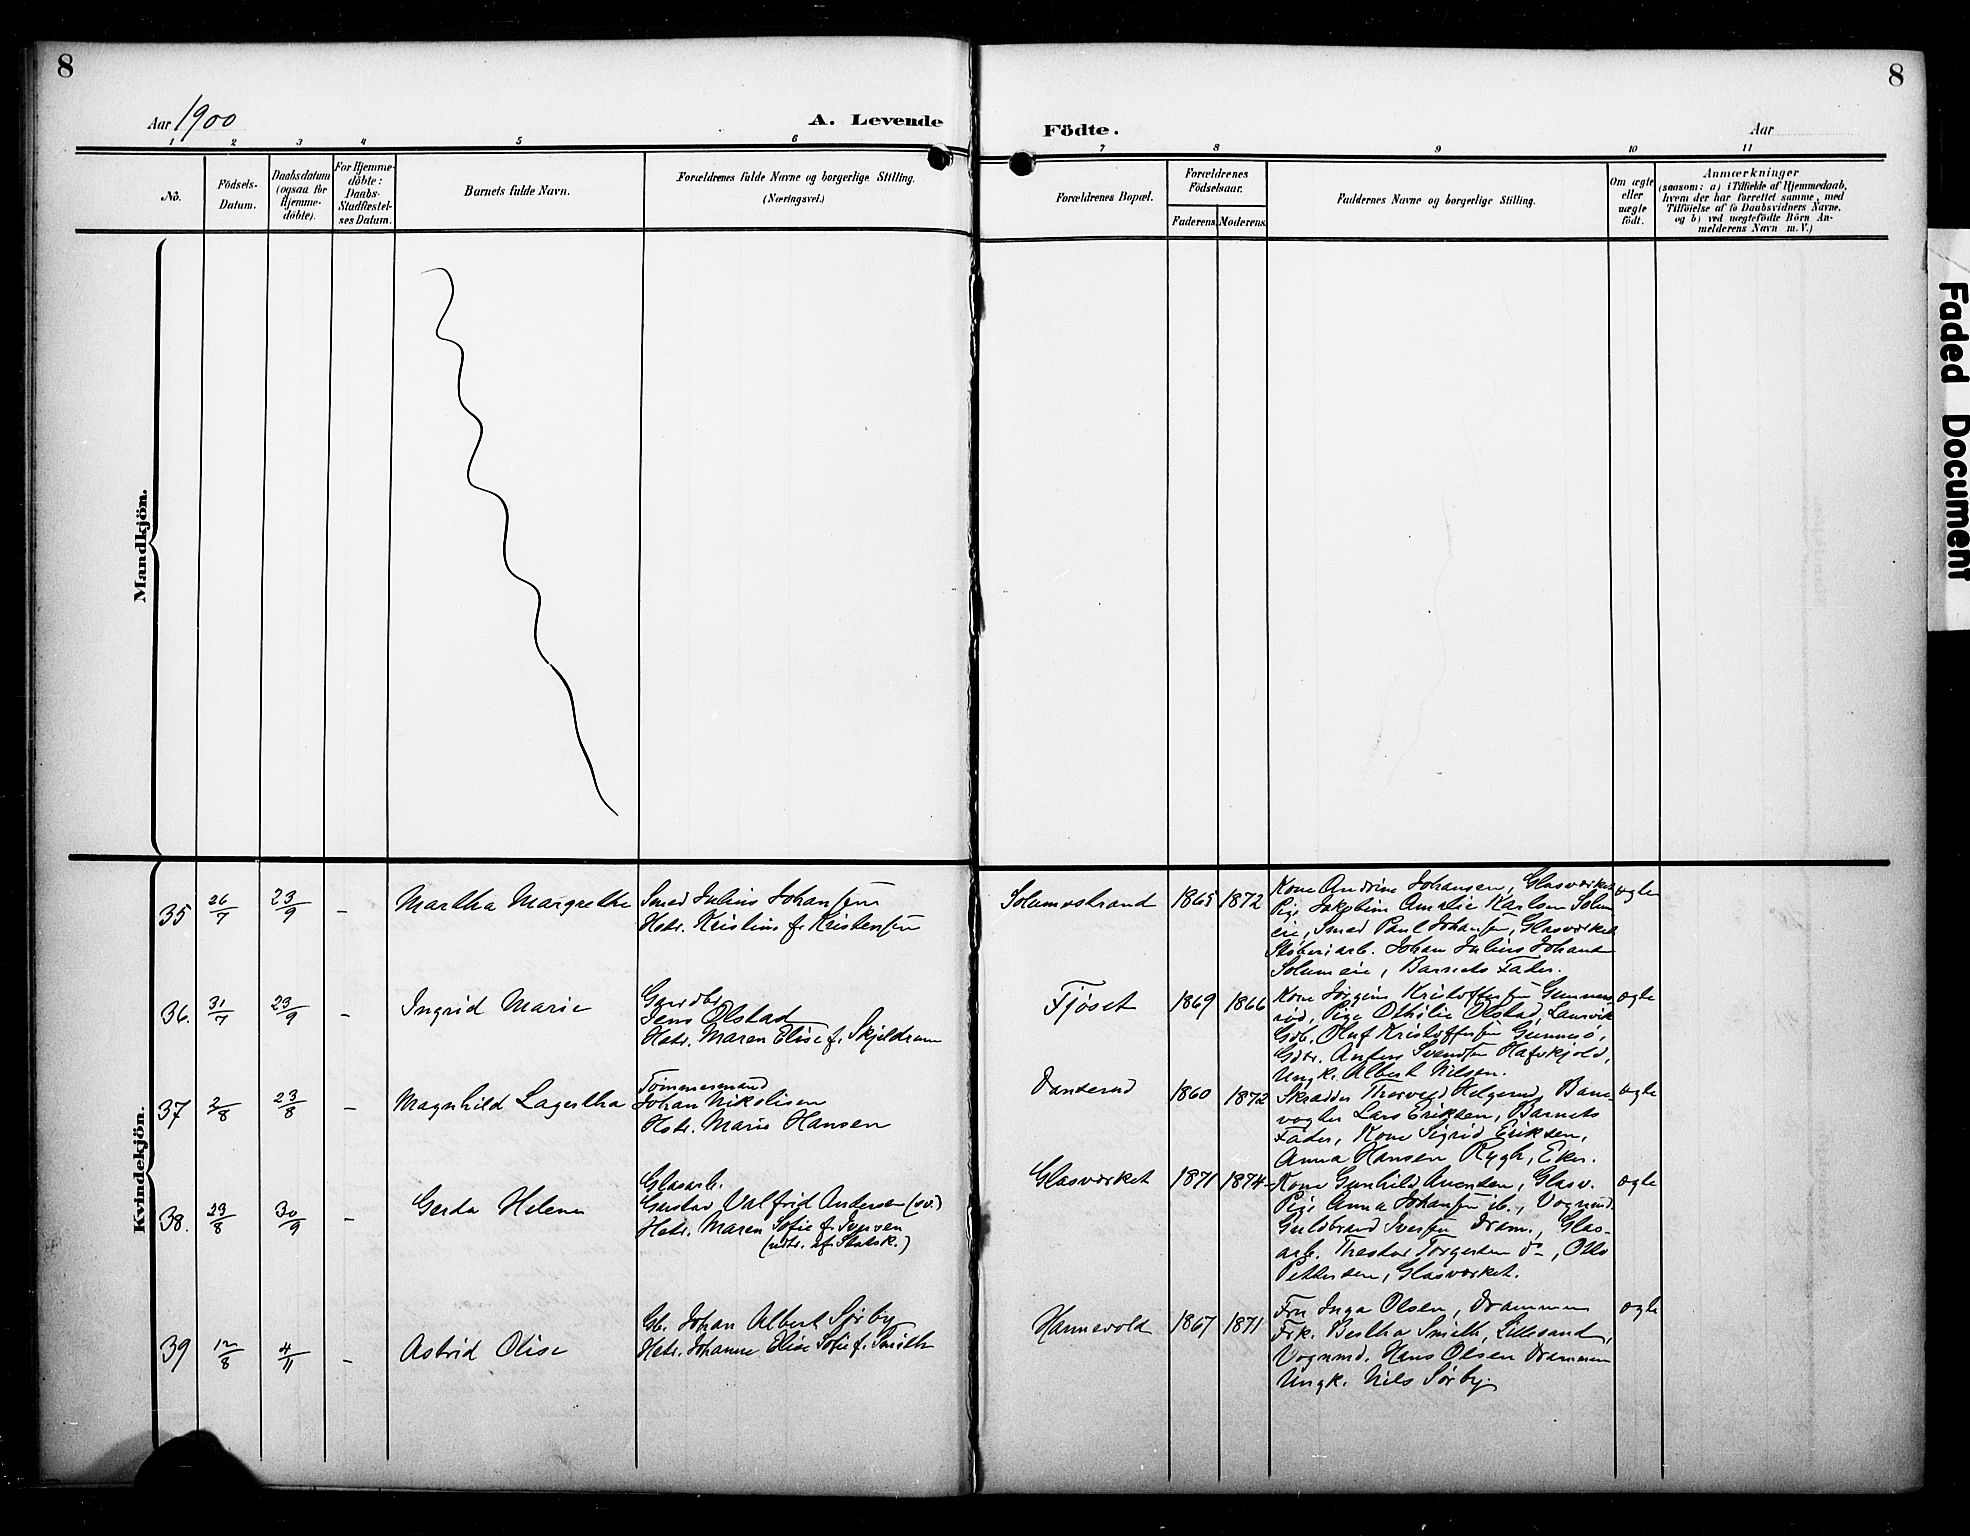 8
8
Aar 1900
A. Levende
Födte.
Aar
1 2 3 4 5 6 7 8 9 10 11
No.
Födsels-
Datum.
Daabsdatum
(ogsaa for
Hjemme-
döbte).
For Hjemme-
döbte:
Daabs-
Stadfæstel-
ses Datum.
Barnets fulde Navn.
Forældrenes fulde Navne og borgerlige Stilling.
(Næringsvei.)
Forældrenes Bopæl.
Forældrenes
Födselsaar.
Faderens Moderens
Faddernes Navne og borgerlige Stilling.
Om ægte
eller
uægte
født.
Anmærkninger
(saasom: a) i Tilfælde af Hjemmedaab,
hvem der har forrettet samme, med
Tilföielse af to Daabsvidners Navne,
og b) ved uægtefödte Börn An-
melderens Navn m. V.)
Mandkjön.
Kvindekjön.
35 26/7 23/9 – Martha Margrethe
Smed Julius Johansen
Hstr. Kristine f. Kristensen
Solumstrand 1865 1872
Kone Andrine Johansen, Glasværket
Pige Jakobine Amalie Karlsen Solum
eie, Smed Paul Johansen, Glasværket
Støberiarb. Johan Julius Johans
Solumeie, Barnets Fader.
ægte
36. 31/7 23/9 – Ingrid Marie
Gaardbr.
Jens Olstad
Hstr. Maren Elise f. Skjeldrum
Fjøset 1869 1866
Kone Jørgine Kristoffersen Gunners
rød, Pige Othilie Olstad, Laurvik
Gdb. Oluf Kristoffersen
Gdbr. Anders Svendsen
Ungk. Albert Nilsen.
ægte
37 2/8 23/8 – Magnhild Lagertha
Tømmermand
Johan Nikolisen
Hstr. Marie Hansen
Danserud 1860 1872
Skrædder Thorvald Helgerud, Bane
vogter Lars Eriksen, Barnets
Fader, Kone Sigrid Eriksen,
Anna Hansen Rygh, Eker.
ægte
38. 23/8 30/9 – Gerda Helene
Glasarb.
Gustav Valfrid Andersen (sv.)
Hstr. Maren Sofie f. Syversen
(udtr. af Statsk.)
Glasværket 1871 1874
Kone Gunhild Amundsen, Glasv.
Pige Anna Johansen ib., Vognmd.
Guldbrand Iversen Dram., Glas-
arb. Theodor Torgersen do, Otto
Pettersen, Glasværket.
ægte
39 12/8 4/11 – Astrid Elise
Gb. Johan Albert Sørby
Hstr. Johanne Elise Sofie f. Smith
Hannevold 1867 1871
Fru Inga Olsen, Drammen
Frk. Bertha Smith, Lillesand,
Vognmd. Hans Olsen Drammen
Ungk. Nils Sørby.
ægte
Faded Document